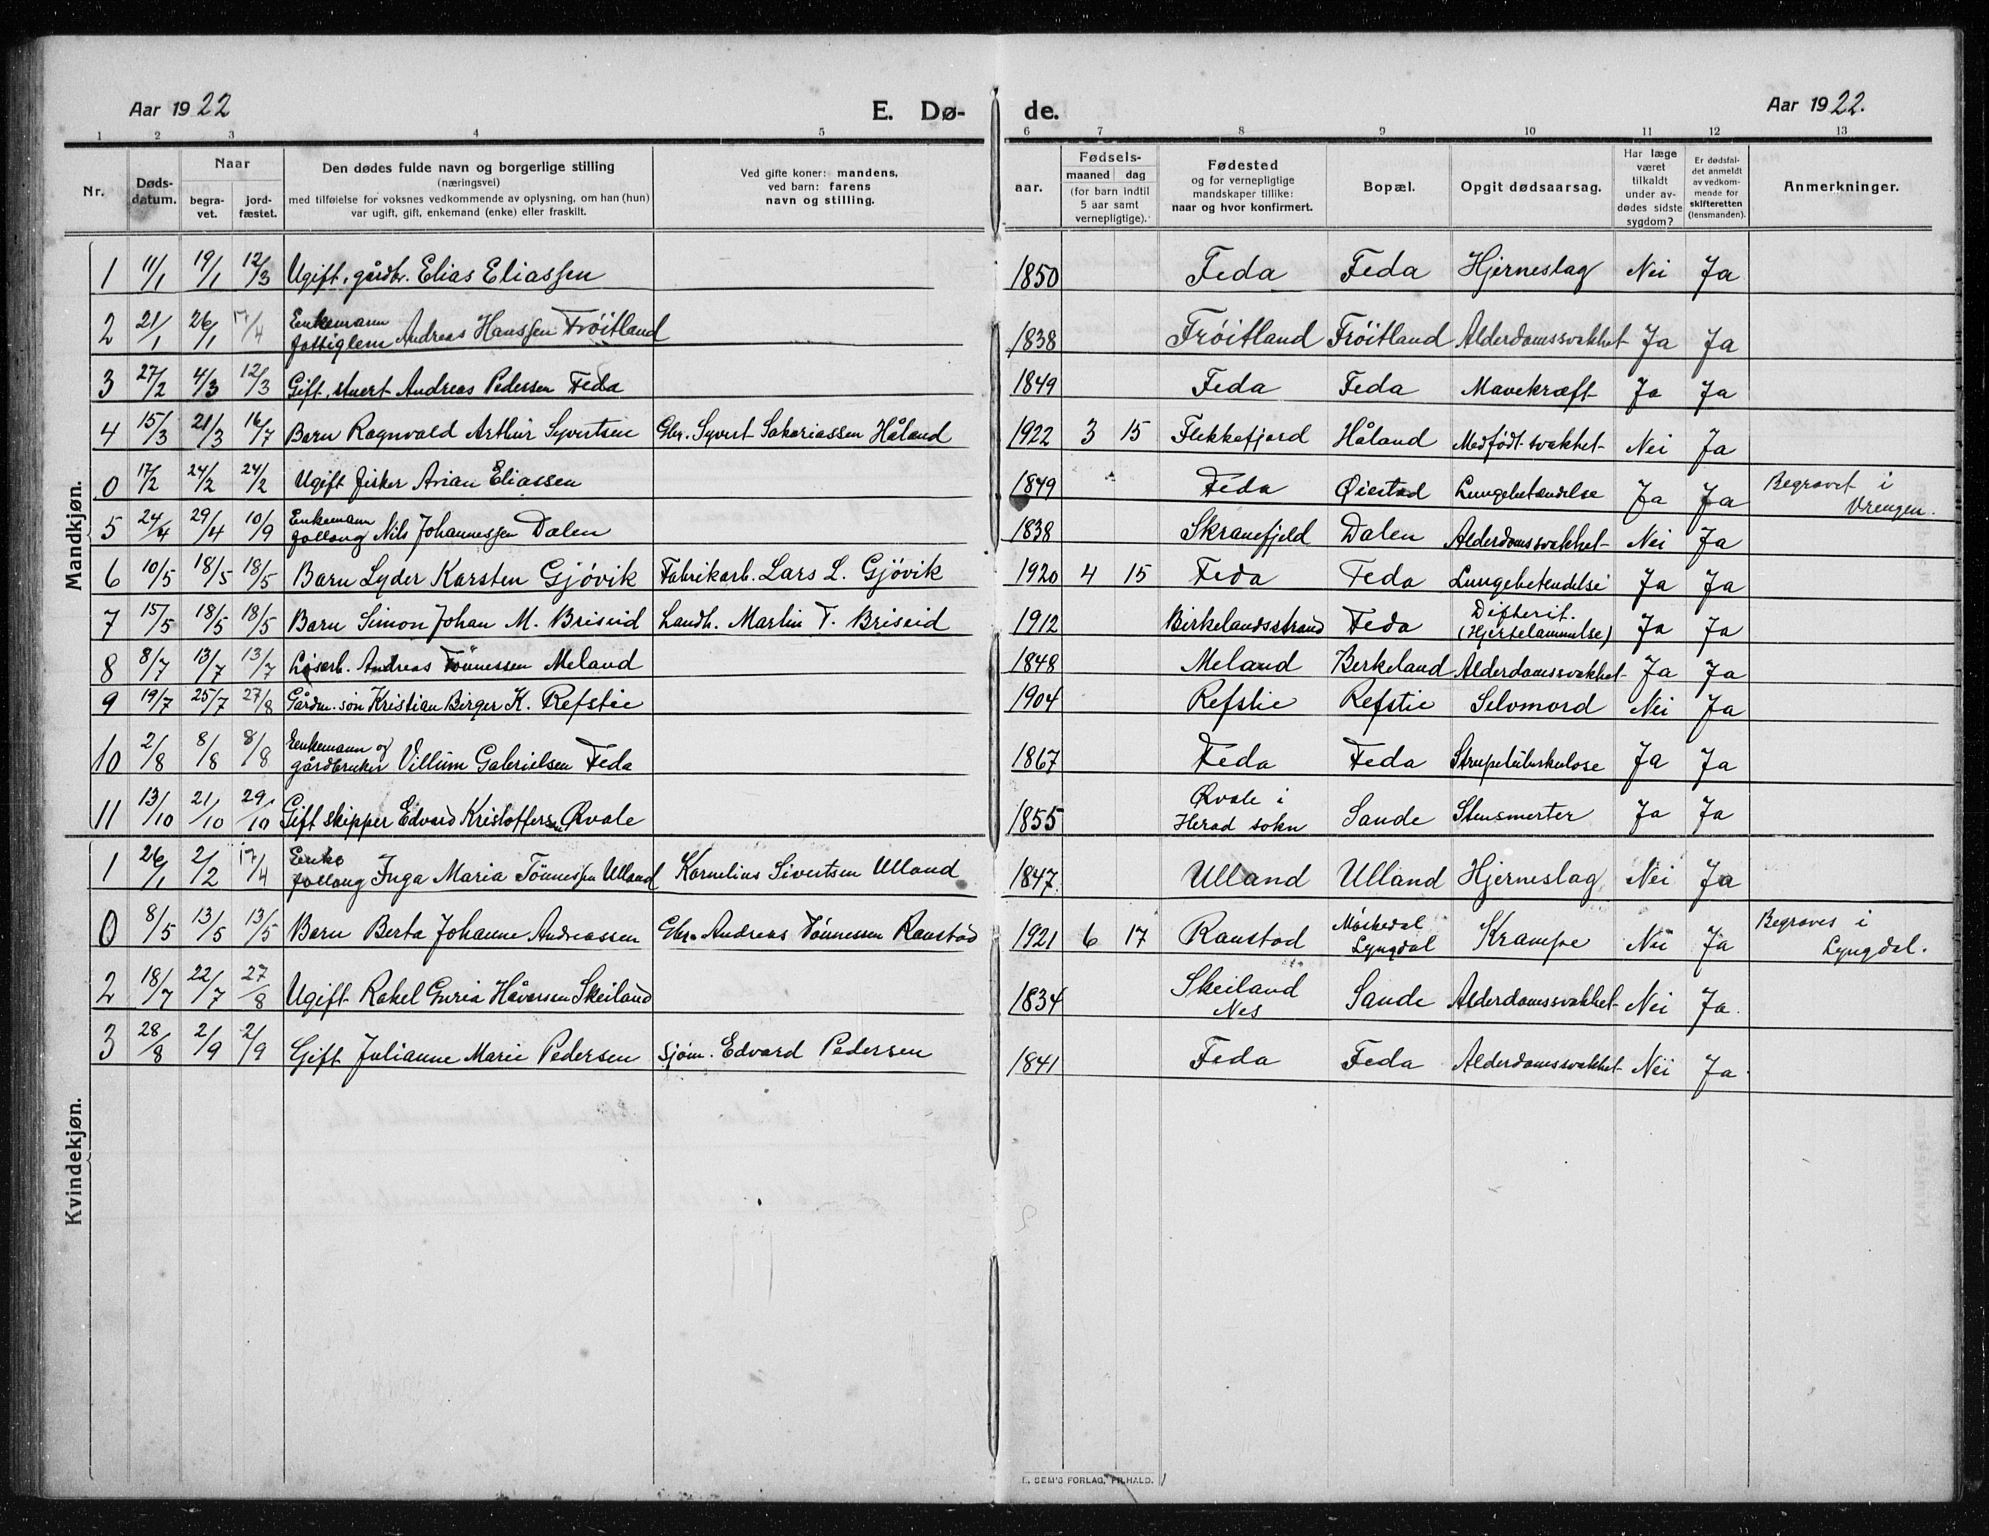 Aar 1922 E. Dø- de. Aar 1922.
1 2 3 4 5 6 7 8 9 10 11 12 13
Nr. Døds-datum. Naar begra-vet. jord-fæstet. Den dødes fulde navn og borgerlige stilling (næringsvei) med tilføielse for voksnes vedkommende av oplysning, om han (hun) var ugift, gift, enkemand (enke) eller fraskilt. Ved gifte koner: mandens, ved barn: farens navn og stilling. Fødsels- aar. maaned dag (for barn indtil 5 aar samt vernepligtige). Fødested og for vernepligtige mandskaper tillike: naar og hvor konfirmert. Bopæl. Opgit dødsaarsag. Har læge været tilkaldt under av-dødes sidste sygdom? Er dødsfal-det anmeldt av vedkom-mende for skifteretten (lensmanden). Anmerkninger.
Mandkjøn.
1 11/1 19/1 12/3 Ugift, gårdbr. Elias Eliassen 1850 Feda Feda Hjerneslag Nei Ja
2 21/1 26/1 17/4 Enkemann fattiglem Andreas Hanssen Frøitland 1838 Frøitland Frøitland Alderdomssvakhet Ja Ja
3 27/2 4/3 12/3 Gift, stuert Andreas Pedersen Feda 1849 Feda Feda Mavekræft Ja Ja
4 15/3 21/3 16/7 Barn Ragnvald Arthur Syvertsen Gbr. Syvert Sakariassen Håland 1922 3 15 Flekkefjord Håland Medfødt svakhet Nei Ja
0 17/2 24/2 24/2 Ugift fisker Arian Eliassen 1849 Feda Øiestad Lungebetændelse Ja Ja Begravet i Vrengen.
5 24/4 29/4 10/9 Enkemann follaug Nils Johannessen Dalen 1838 Skranefjeld Dalen Alderdomssvakhet Nei Ja
6 10/5 18/5 18/5 Barn Lyder Karsten Gjøvik Fabrikarb. Lars L. Gjøvik 1920 4 15 Feda Feda Lungebetendelse Ja Ja
7 15/5 18/5 18/5 Barn Simon Johan M. Briseid Landh. Martin T. Briseid 1912 Birkelandsstrand Feda Difterit. (Hjertelammelse) Ja Ja
8 8/7 13/7 13/7 Løsarb. Andreas Tønnessen Meland 1848 Meland Berkeland Alderdomssvakhet Ja Ja
9 19/7 25/7 27/8 Gårdm. søn Kristian Birger K. Refstie 1904 Refstie Refstie Selvmord Nei Ja
10 2/8 8/8 8/8 Enkemann og gårdbruker Villum Gabrielsen Feda 1867 Feda Feda Strupetuberkulose Ja Ja
11 13/10 21/10 29/10 Gift skipper Edvard Kristoffersen Øvale 1855 Øvale i Herad sokn Sande Stensmerter Ja Ja
Kvindekjøn.
1 26/1 2/2 17/4 Enke follaug Inga Maria Tønnessen Ulland Kornelius Sivertsen Ulland 1847. Ulland Ulland Hjerneslag Nei Ja
0 8/5 13/5 13/5 Barn Berta Johanne Andreassen Gbr. Andreas Tønnessen Raustad 1921 6 17 Raustad Møskedal Lyngdal Krampe Nei Ja Begraves i Lyngdal.
2 18/7 22/7 27/8 Ugift Rakel Guria Håversen Skeiland 1834 Skeiland Nes Sande Alderdomssvakhet Nei Ja.
3 28/8 2/9 2/9 Gift Julianne Marie Pedersen Sjøm. Edvard Pedersen 1841 Feda Feda Alderdomssvakhet Nei Ja
E. SEM'S FORLAG, FR.HALD.